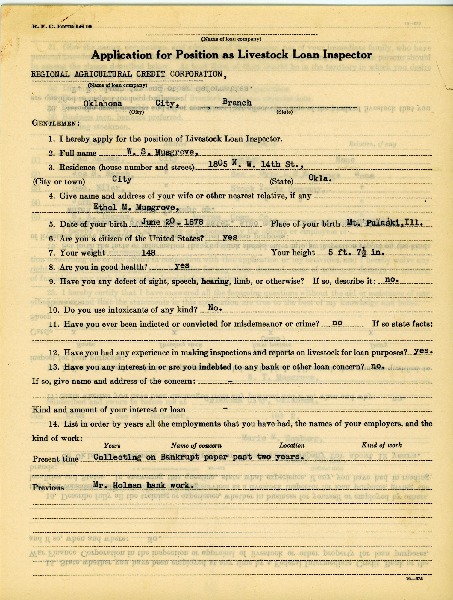 (Name of loan company)
Application for Position as Livestock Loan Inspector
REGIONAL AGRICULTURAL CREDIT CORPORATION,
(Name of loan company)
Oklahoma City, Branch
(City) (State)
GENTLEMEN:
1. I hereby apply for the position of Livestock Loan Inspector.
2. Full name W. S. Musgrove,
3. Residence (house number and street) 1805 N. W. 14th St.,
(City or town) City (State) Okla.
4. Give name and address of your wife or other nearest relative, if any
Ethel M. Musgrove,
5. Date of your birth June 20 - 1878 Place of your birth Mt. Pulaski, Ill.
6. Are you a citizen of the United States? yes
7. Your weight 148 Your height 5 ft. 7½ in.
8. Are you in good health? yes
9. Have you any defect of sight, speech, hearing, limb, or otherwise? If so, describe it: no.
10. Do you use intoxicants of any kind? No.
11. Have you ever been indicted or convicted for misdemeanor or crime? no If so state facts:
12. Have you had any experience in making inspections and reports on livestock for loan purposes? yes.
13. Have you any interest in or are you indebted to any bank or other loan concern? no.
If so, give name and address of the concern: -
Kind and amount of your interest or loan -
14. List in order by years all the employments that you have had, the names of your employers, and the
kind of work:
Years Name of concern Location Kind of work
Present time Collecting on Bankrupt paper past two years.
Previous Mr. Holman bank work.